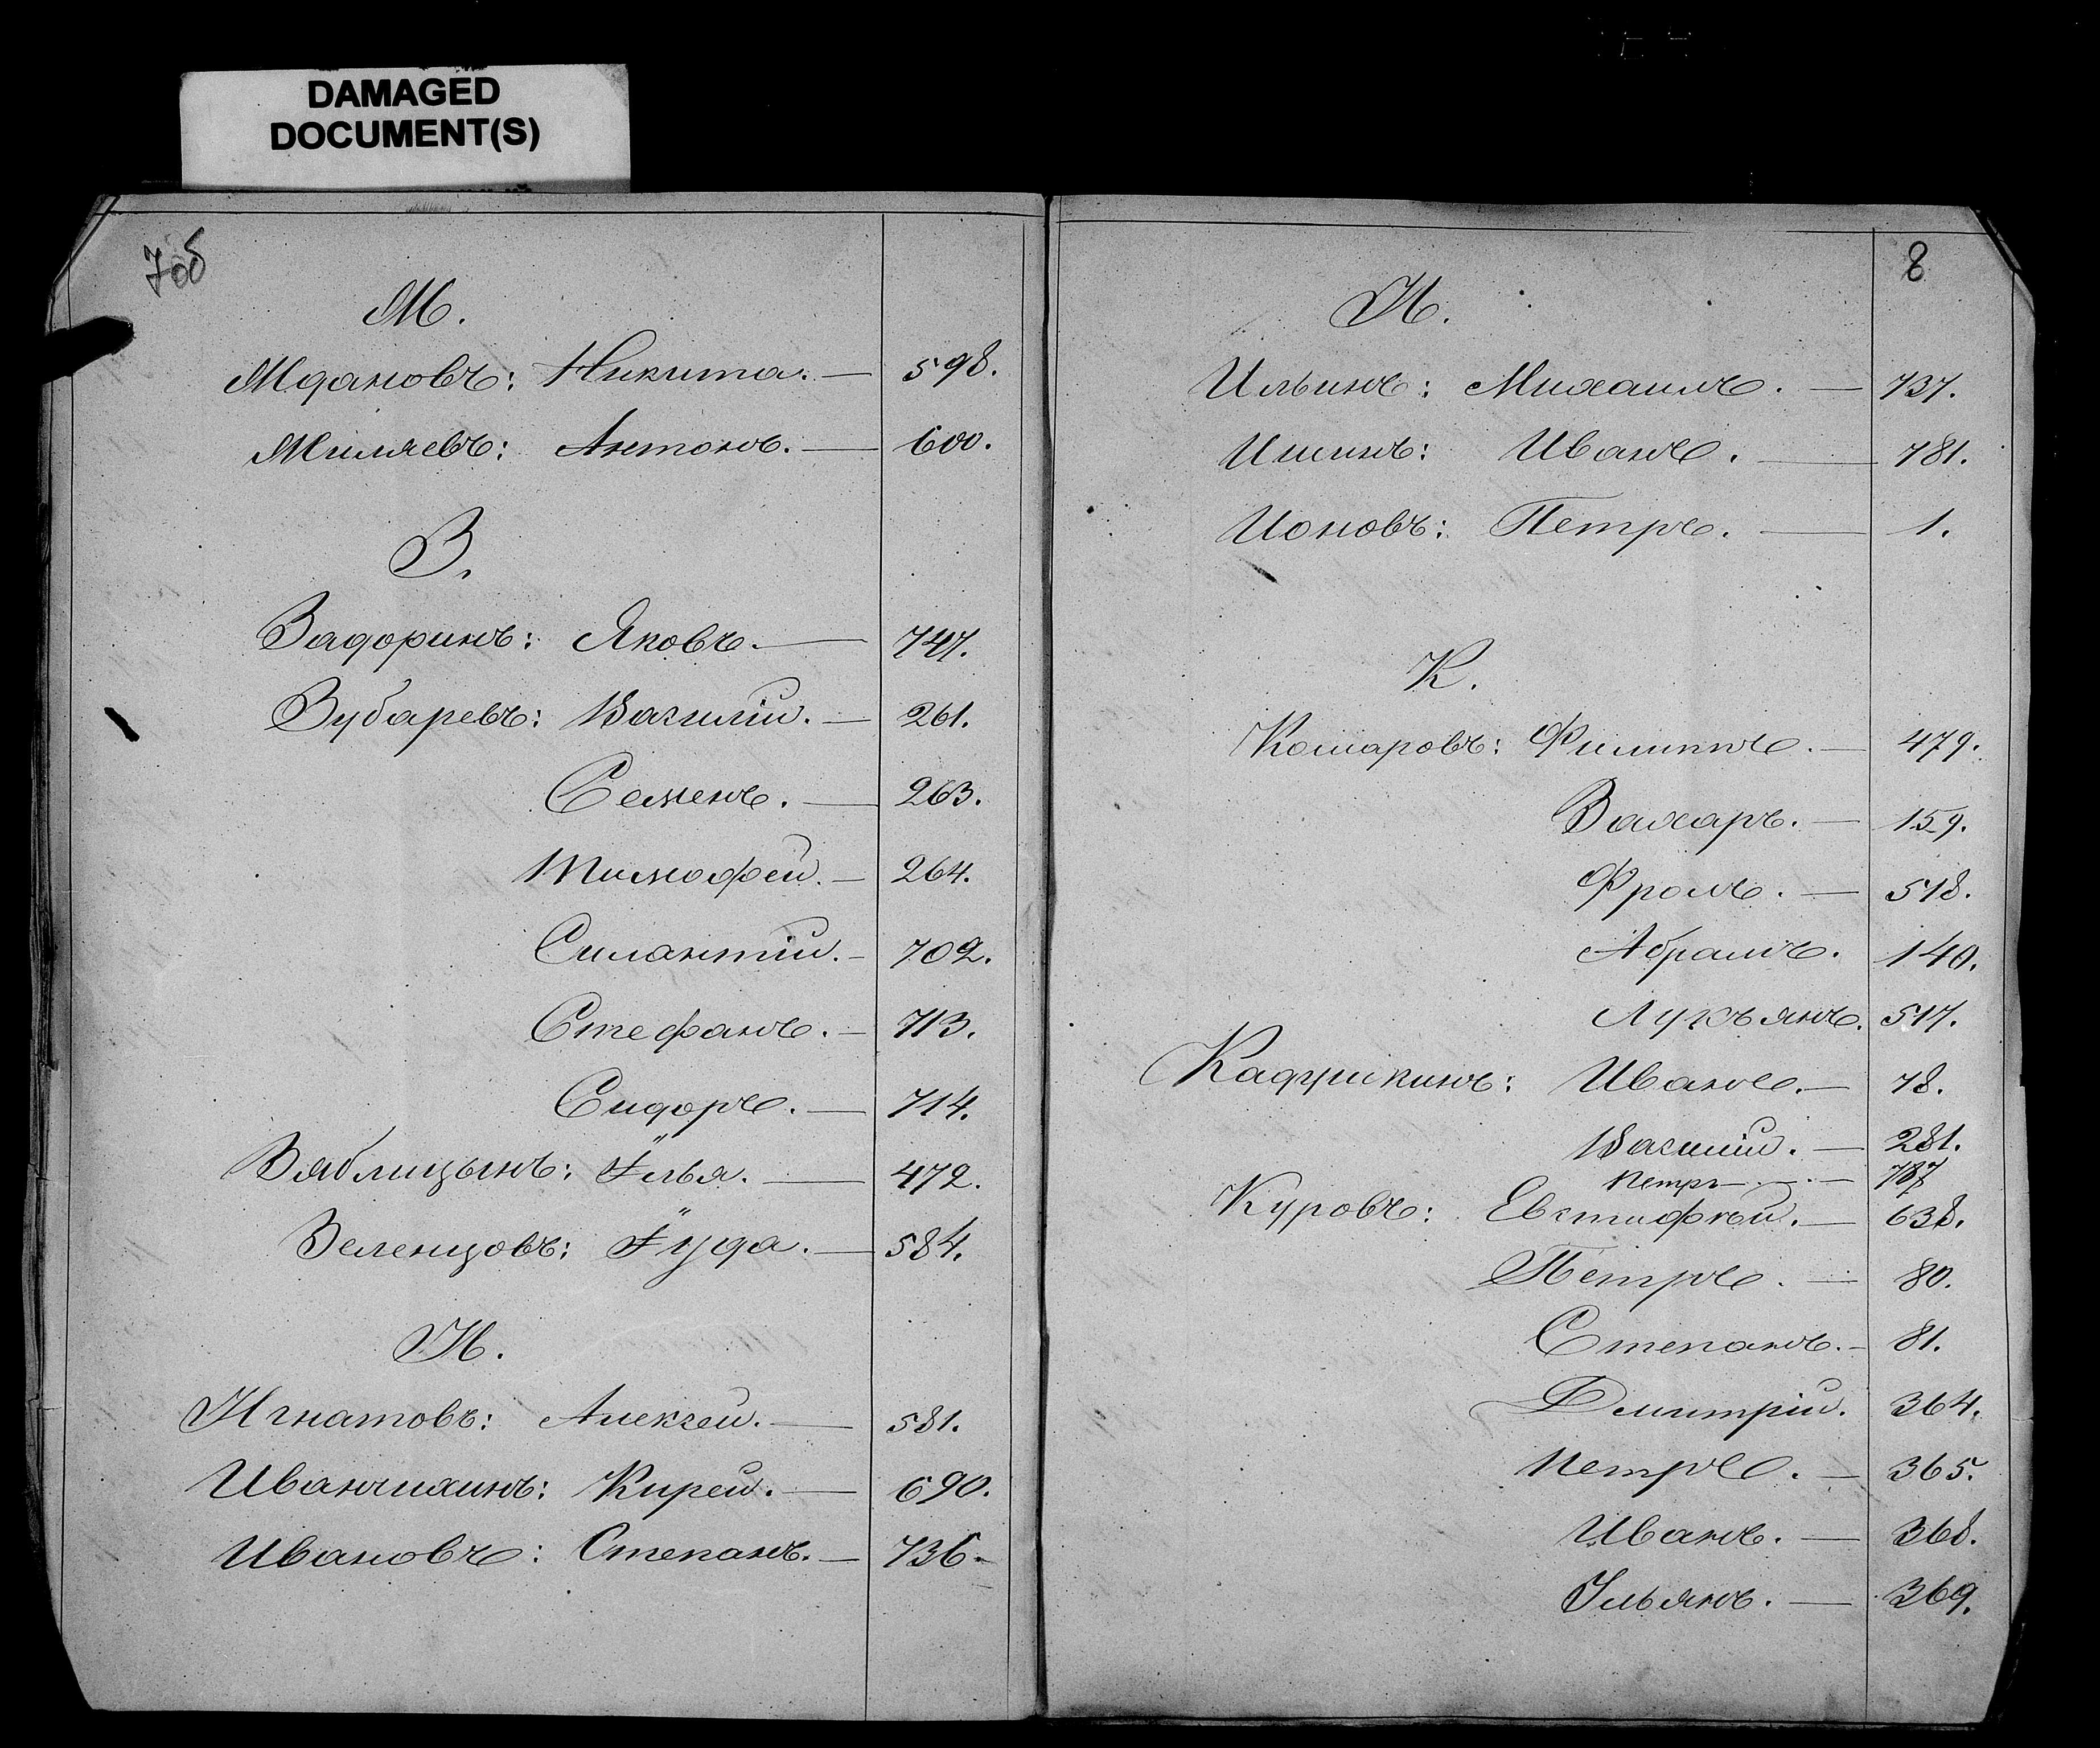 DAMAGED
DOCUMENT(S)
7об
Ж.
Ждановъ: Никита. — 598.
Жиляевъ: Антонъ. — 600.
З.
Задоринъ: Яковъ. — 747.
Зубаревъ: Василій. — 261.
Семенъ. — 263.
Тимофей. — 264.
Силантій. — 702.
Стефанъ. — 713.
Сидоръ. — 714.
Зяблицынъ: Їлья. — 472.
Зеленцовъ: Їуда. — 584.
И.
Игнатовъ: Алексей. — 581.
Иванчихинъ: Кирей. — 690.
Ивановъ: Степанъ. — 736.
8
И.
Ильинъ: Михаилъ. — 737.
Ишинъ: Иванъ. — 781.
Ионовъ: Петръ. — 1.
К.
Комаровъ: Филиппъ. — 479.
Захаръ. — 159.
Фролъ. — 518.
Абрамъ. 140.
Лукъянъ. 517.
Кадушкинъ: Иванъ. — 78.
Василій. — 281.
Петръ — 787
Куровъ: Евстифѣй. — 638.
Петръ. — 80.
Степанъ. — 81.
Дмитрій. 364.
Петръ. — 365.
Иванъ. — 368.
Ульянъ. — 369.